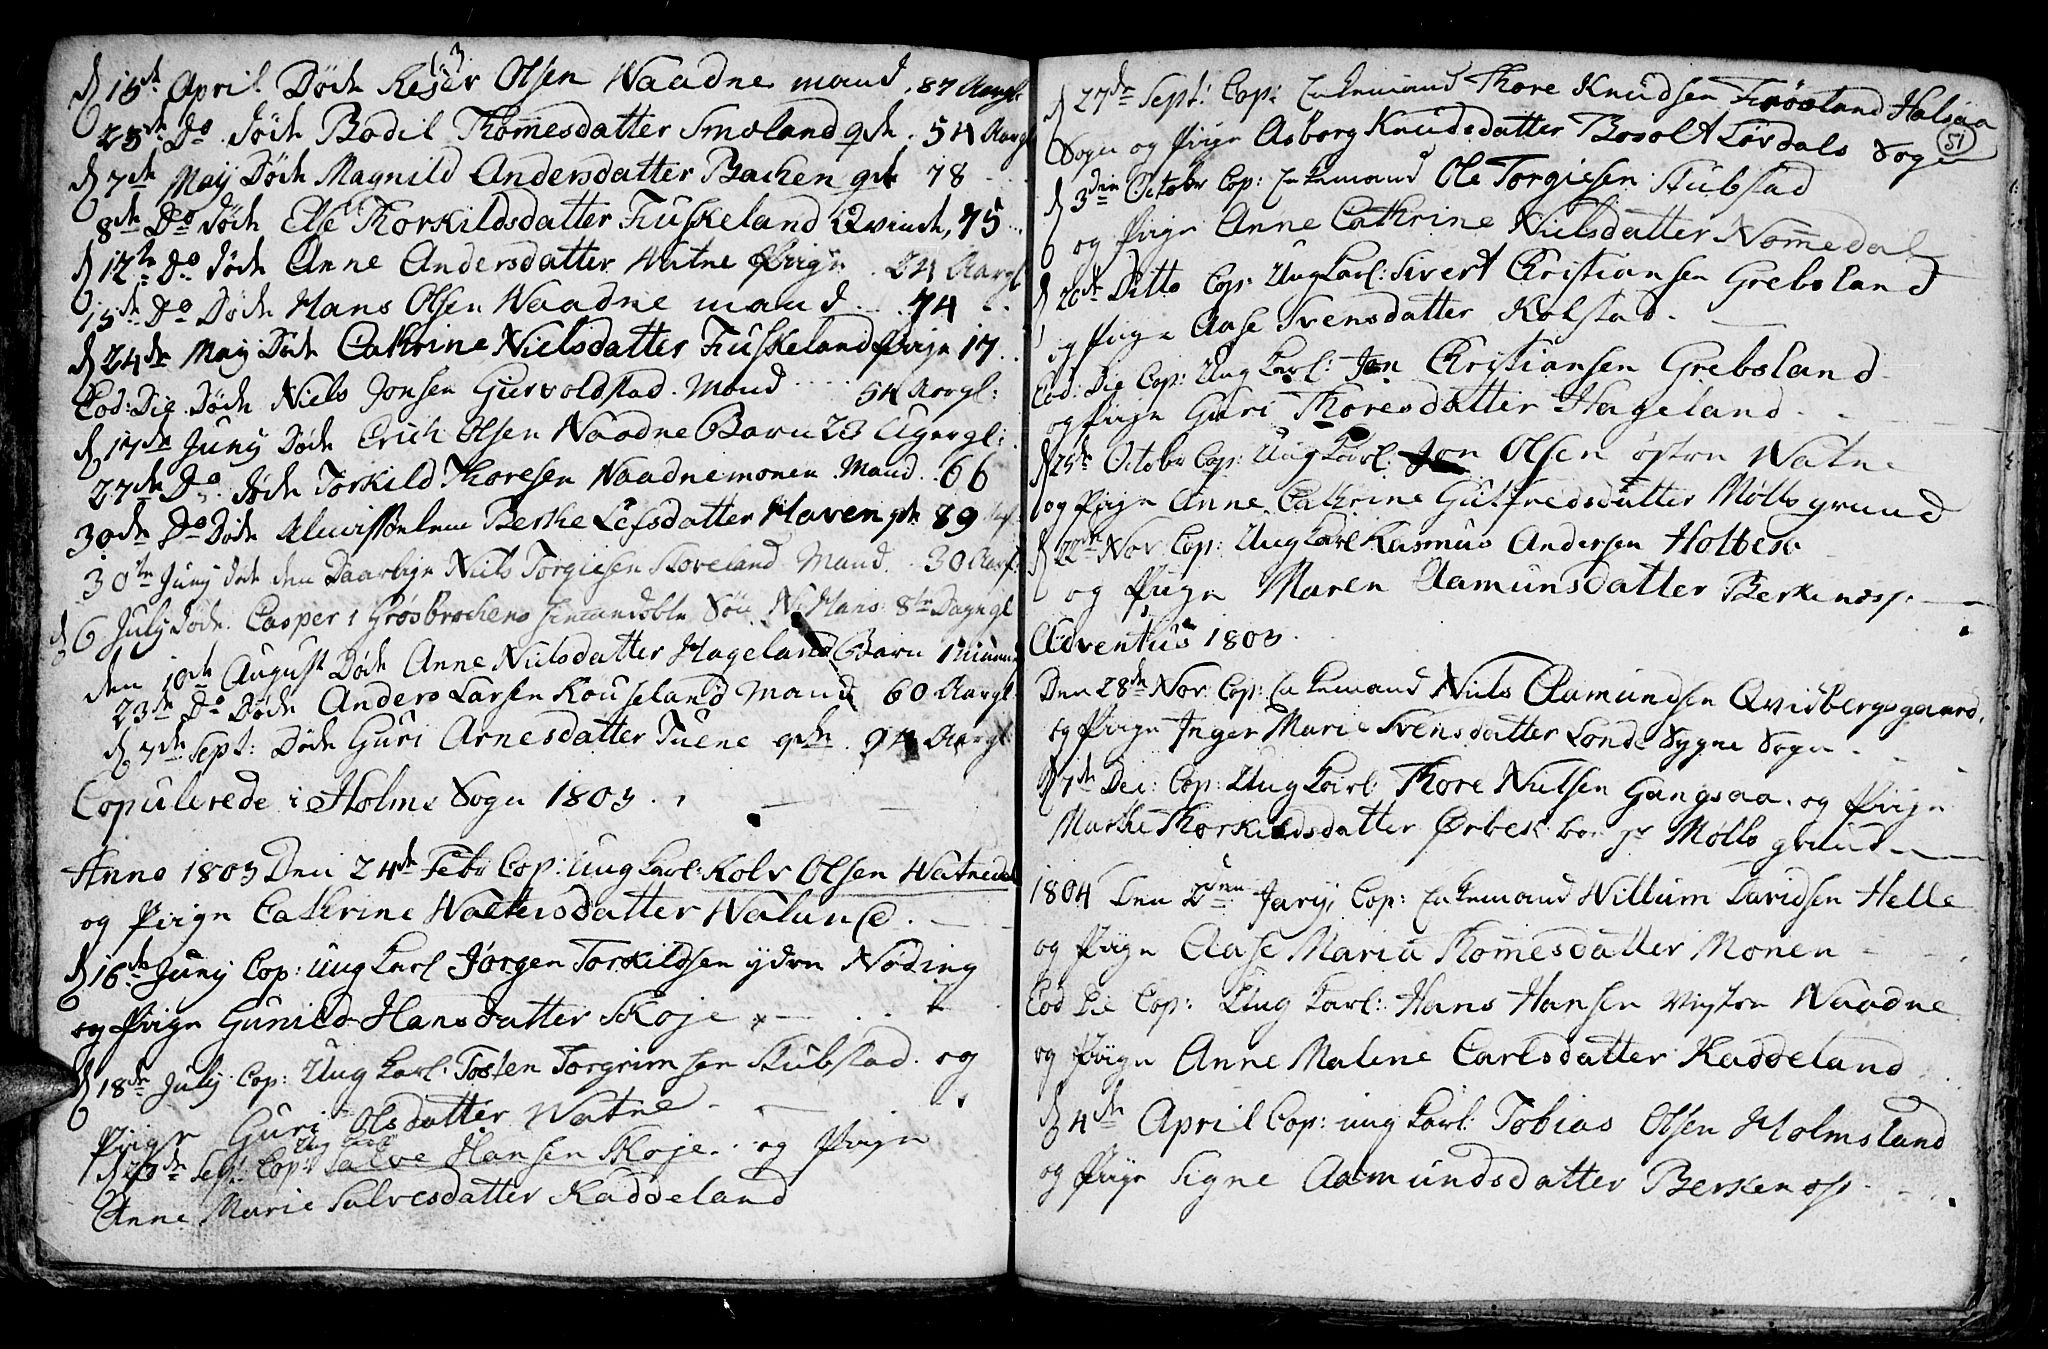 d 15de April Døde Resier Olsen Waadne mand, 87 Aargl.
23de Do. døde Bodil Thomesdatter Smeland qde. 54 Aargl
d 7de Maij Døde Magnild Andersdatter Bachen qde 78
8de Do døde Else Thorkildsdatter Fuskeland Qvinde, 75
d 12te Do døde Anne Andersdatter Watne Pige. 24 Aargl
15de Do Døde Hans Olsen Waadne mand. 74
d 24de Maij Døde Cathrine Nielsdatter Fuskeland Pige 17
Eod: Die Døde Niels Jonsen Gurvoldstad. Mand 54 Aargl:
d 17de Junij Døde Erich Olsen Naadne Barn 23 Ugergl:
27de Do. døde Torkild Thoresen Waadnemonen Mand. 66
30de Do Døde Berthe Lefsdatter Haven qde 89
30te Junij døde den Niels Torgiesen Storeland Mand. 30 Aargl:
d 6 July døde Casper i Grøsbrochens Søn Hans 8te Dage gl
den 10de August Døde Anne Nielsdatter Hageland Barn 1
23de Do Døde Anders Larsen Kouseland Mand 60 Aargl
d 7de Sept: Døde Guri Arnesdatter Tuene qde. 94 Aargl:
Copulerede i Holms Sogn 1803.
Anno 1803 Den 24de Febr Cop: Ung Karl: Rolv Olsen Watnedal
og Pige Cathrine Waltersdatter Walunse.
d 16de Junij Cop: Ung Karl Jørgen Torkildsen ydre Nøding
og Pige Gunild Hansdatter Skoje
d 18de Julij Cop: Ung Karl: Tosten Torgrimsen Stubstad. og
Pige Guri Olsdatter Watne
d 20de Sept: Cop: Ung Karl Salve Hansen Skoje. og Pige
Anne Marie Salvesdatter Kaddeland
51
d 27de Sept: Cop: Enkemand Thore Knudsen Frøsland Halsaa
Sogn og Pige Asborg Knudsdatter Bosolt Løvdals Sogn
d 3die October Cop: Enkemand Ole Torgiesen Stubstad
og Pige Anne Cathrine Nielsdatter Nomedal
d 20de Ditto Cop: Ung Karl: Sivert Christiansen Grebsland
og Pige Aase Svensdatter Kolstad.
Eod: Die Cop: Ung Karl: Jon Christiansen Grebsland
og Pige Guri Thoresdatter Hageland
d 25de October Cop: Ung Karl: Jon Olsen østre Watne
og Pige Anne Cathrine Gulfredsdatter Mølbsgrund
d 22de Nov Cop: Ung Karl Rasmus Andersen Holbeso
og Pige Maren Aamunsdatter Berkenæss
Adventus 1803.
Den 28de Nov: Cop: Enkemand Niels Aamundsen Qvidbergsgaard.
og Pige Inger Marie Svensdatter Londe Sygne Sogn
d 7de Dec: Cop: Ung Karl: Thore Nielsen Gangsaa. og Pige
Marthe Thorkildsdatter Ørbek Mølbsgrund
1804 Den 2den Jary, Cop: Enkemand Willum Davidsen Helle
og Pige Aase Maria Thomesdatter Monen
Eod Die Cop: Ung Karl: Hans Hansen Waadne
og Pige Anne Malene Carlsdatter Kaddeland
d 4de April Cop: ung Karl: Tobias Olsen Holmsland
og Pige Signe Aamundsdatter Berkenæs